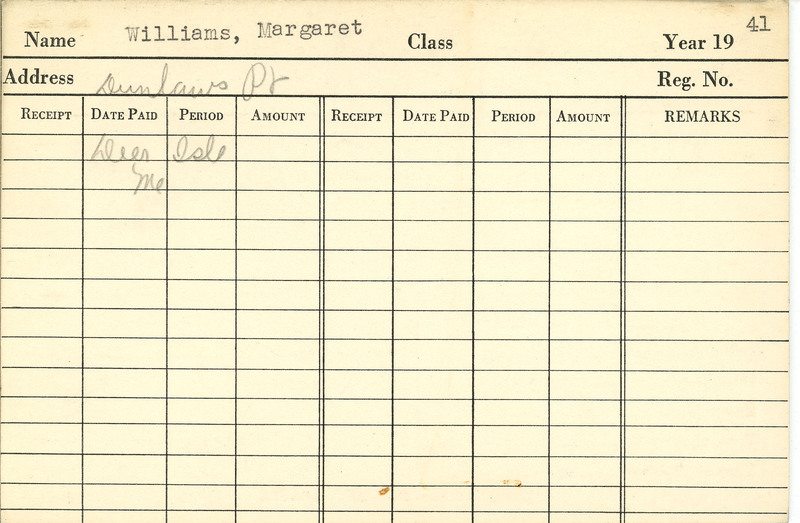 Name Williams, Margaret Class Year 19 41
Address Dunlaws Pt Reg. No.
RECEIPT DATE PAID PERIOD AMOUNT RECEIPT DATE PAID PERIOD AMOUNT REMARKS
Deer Isle
Me